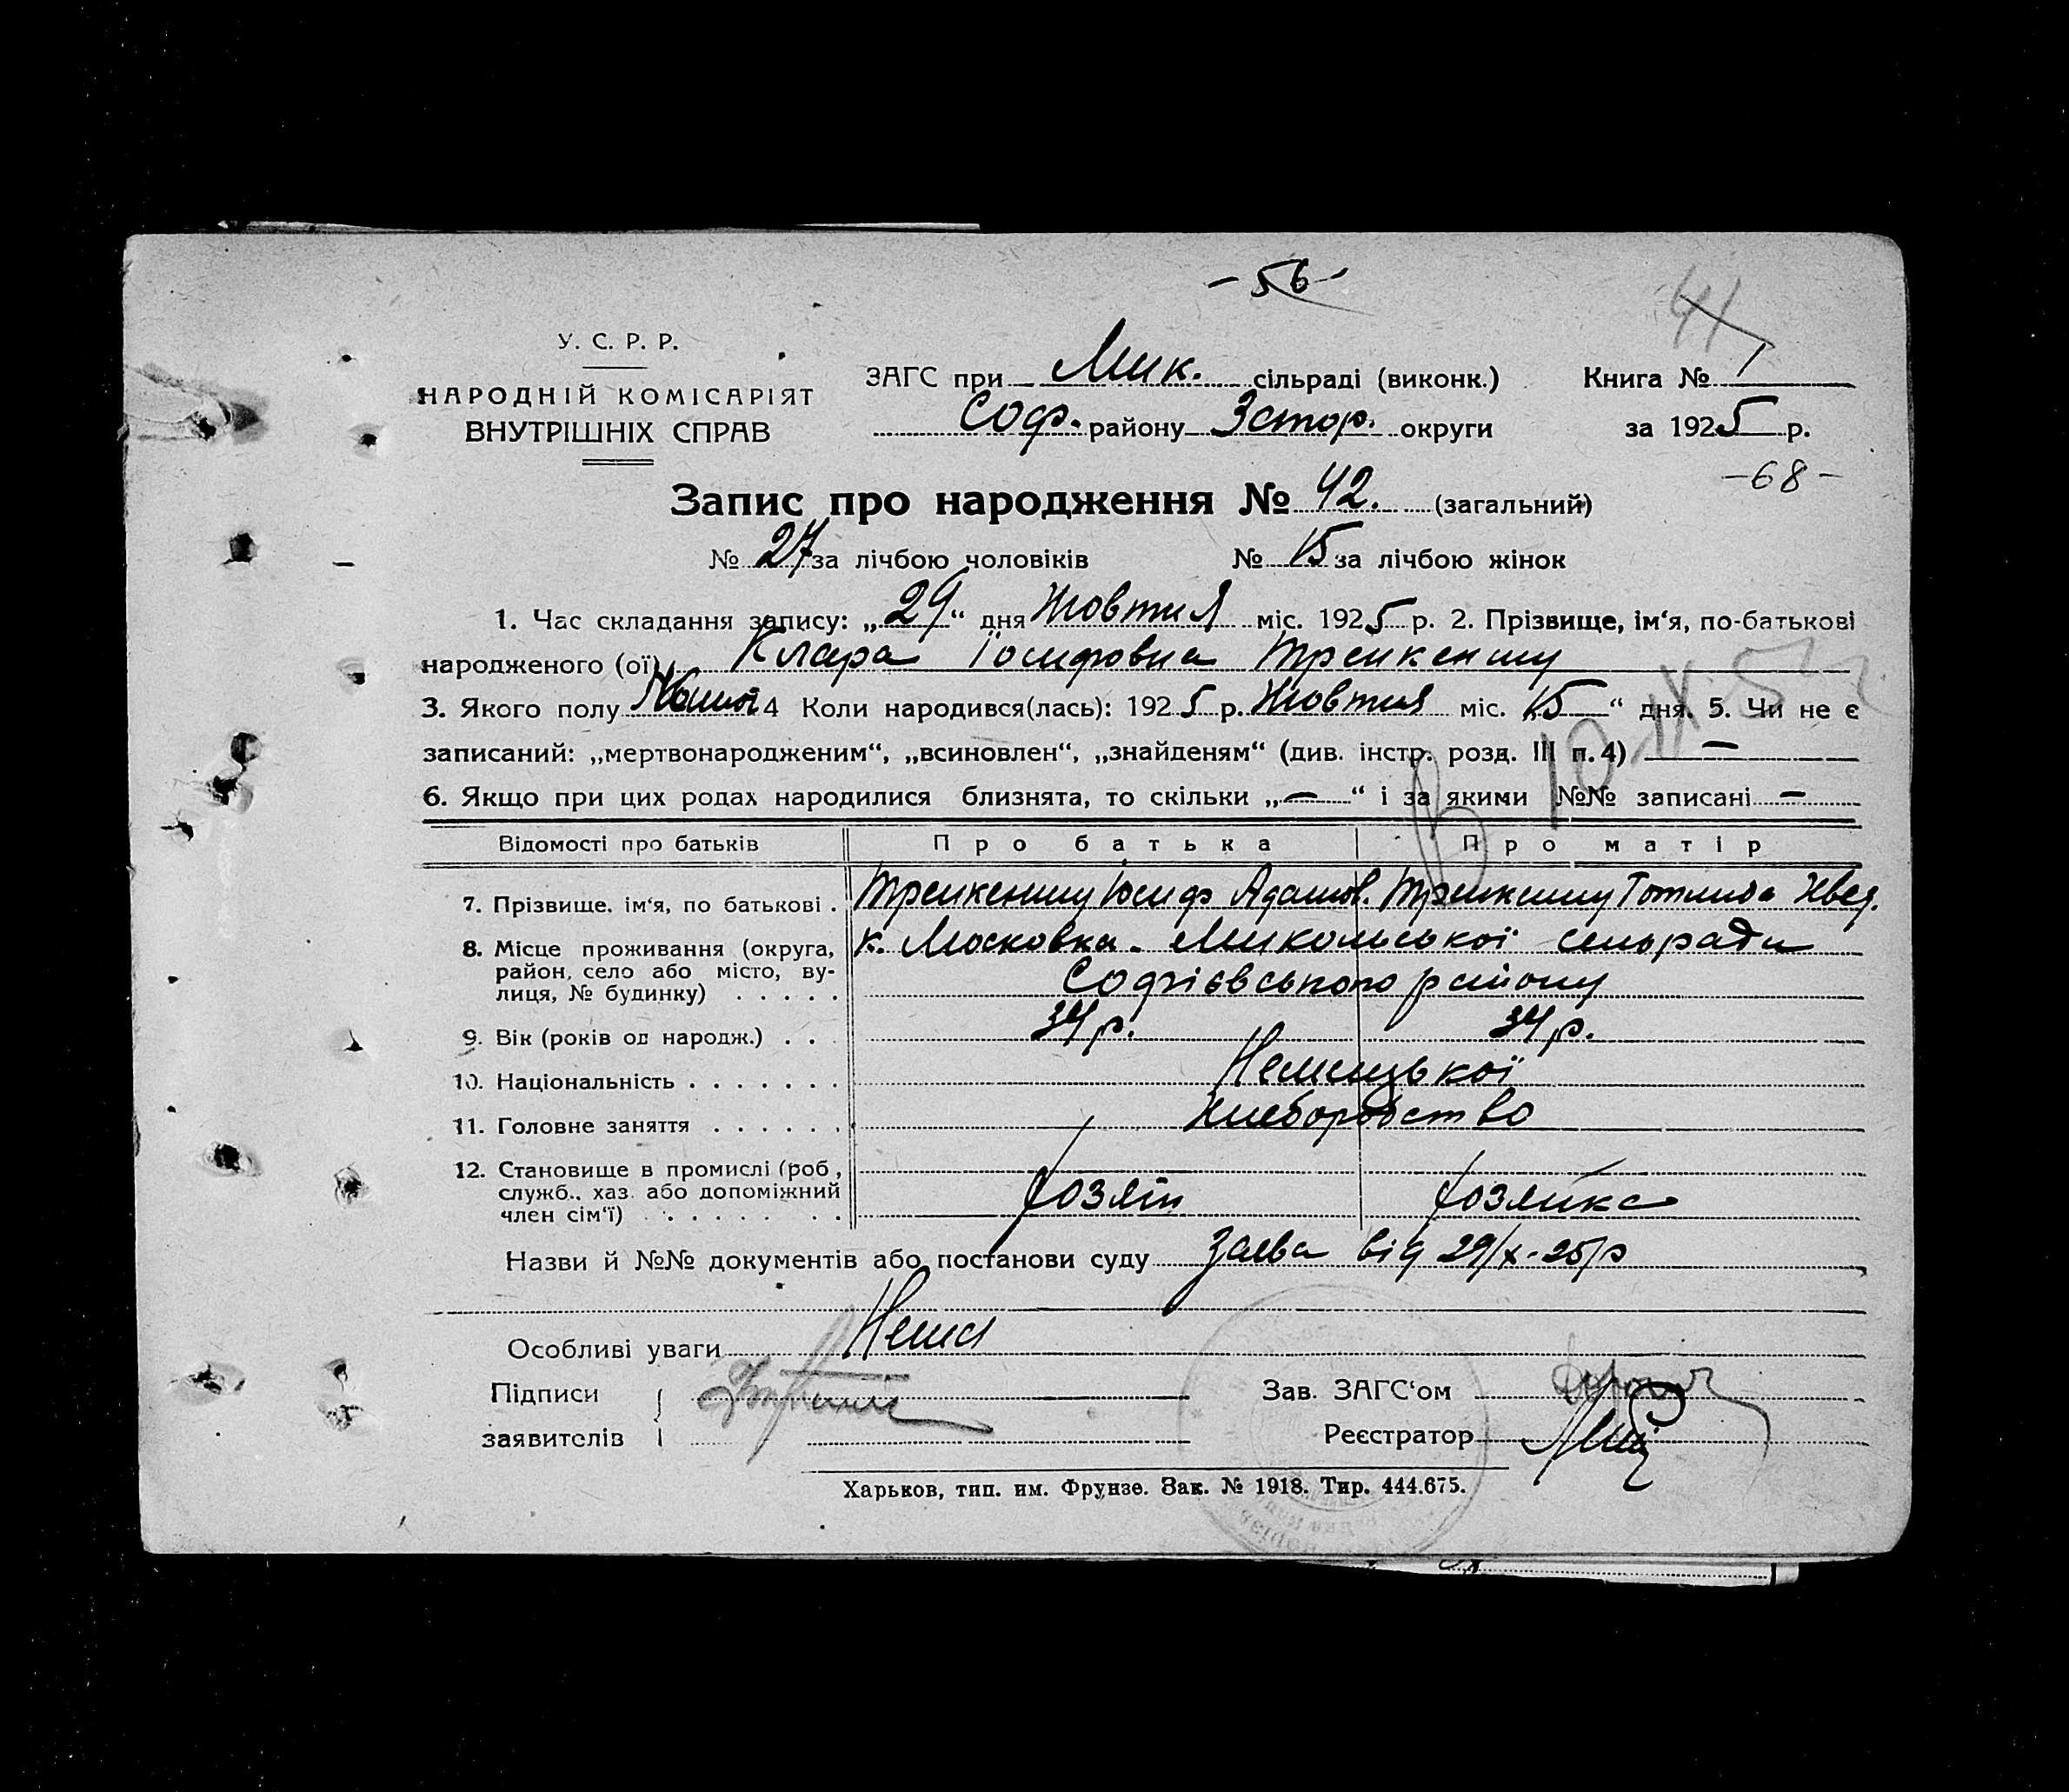 - 56 -
41
У. С. Р. Р.
НАРОДНІЙ КОМІСАРІЯТ
ВНУТРІШНІХ СПРАВ
ЗАГС при Мик. сільраді (виконк.) Книга № 1
Соф. району Зстор. округи за 1925 р.
- 68 -
Запис про народження № 42. (загальний)
№ 27 за лічбою чоловіків № 15 за лічбою жінок
1. Час складання запису: „29“ дня Жовтня міс. 1925 р. 2. Прізвище, ім‘я, по-батькові
народженого (ої) Клара Їосифовна
3. Якого полу 4 Коли народився(лась): 1925 р. Жовтня міс. 15“ дня. 5. Чи не є
записаний: „мертвонародженим“, „всиновлен“, „знайденям“ (див. інстр. розд. III п. 4) —
6. Якщо при цих родах народилися близнята, то скільки „—“ і за якими №№ записані —
Відомості про батьків Про батька Про матір
7. Прізвище, ім‘я, по батькові . Юсиф Адамов.
8. Місце проживання (округа, район, село або місто, вулиця, № будинку) . . . . .
к. Московка. Микольської сельради
Софієвського району
9. Вік (років од народж.) . . . 34 р. 34 р.
10. Національність . . . . . . . Немецької
11. Головне заняття . . . . . . Хлеборобство
12. Становище в промислі (роб., служб., хаз. або допоміжний член сім‘ї) . . . . . . . . .
Хозяін Хозяйка
Назви й №№ документів або постанови суду Заява від 29/X-25 р
Особливі уваги Нема
Підписи
заявителів
Зав. ЗАГС‘ом
Реєстратор
Харьков, тип. им. Фрунзе. Зак. № 1918. Тир. 444.675.